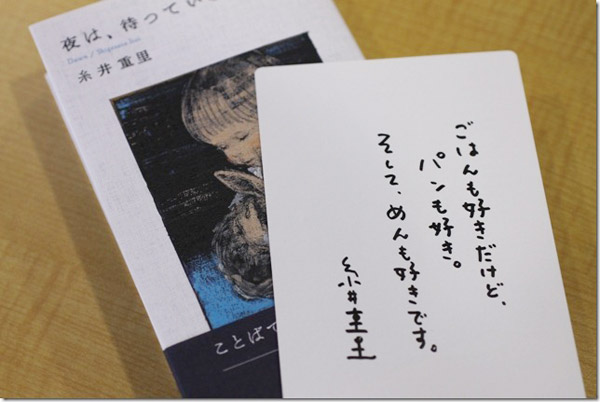 夜は、待ってい
糸井重里
ごはんも好きだけど、
パンも好き。
そして、めんも好きです。
糸井重里
ことば